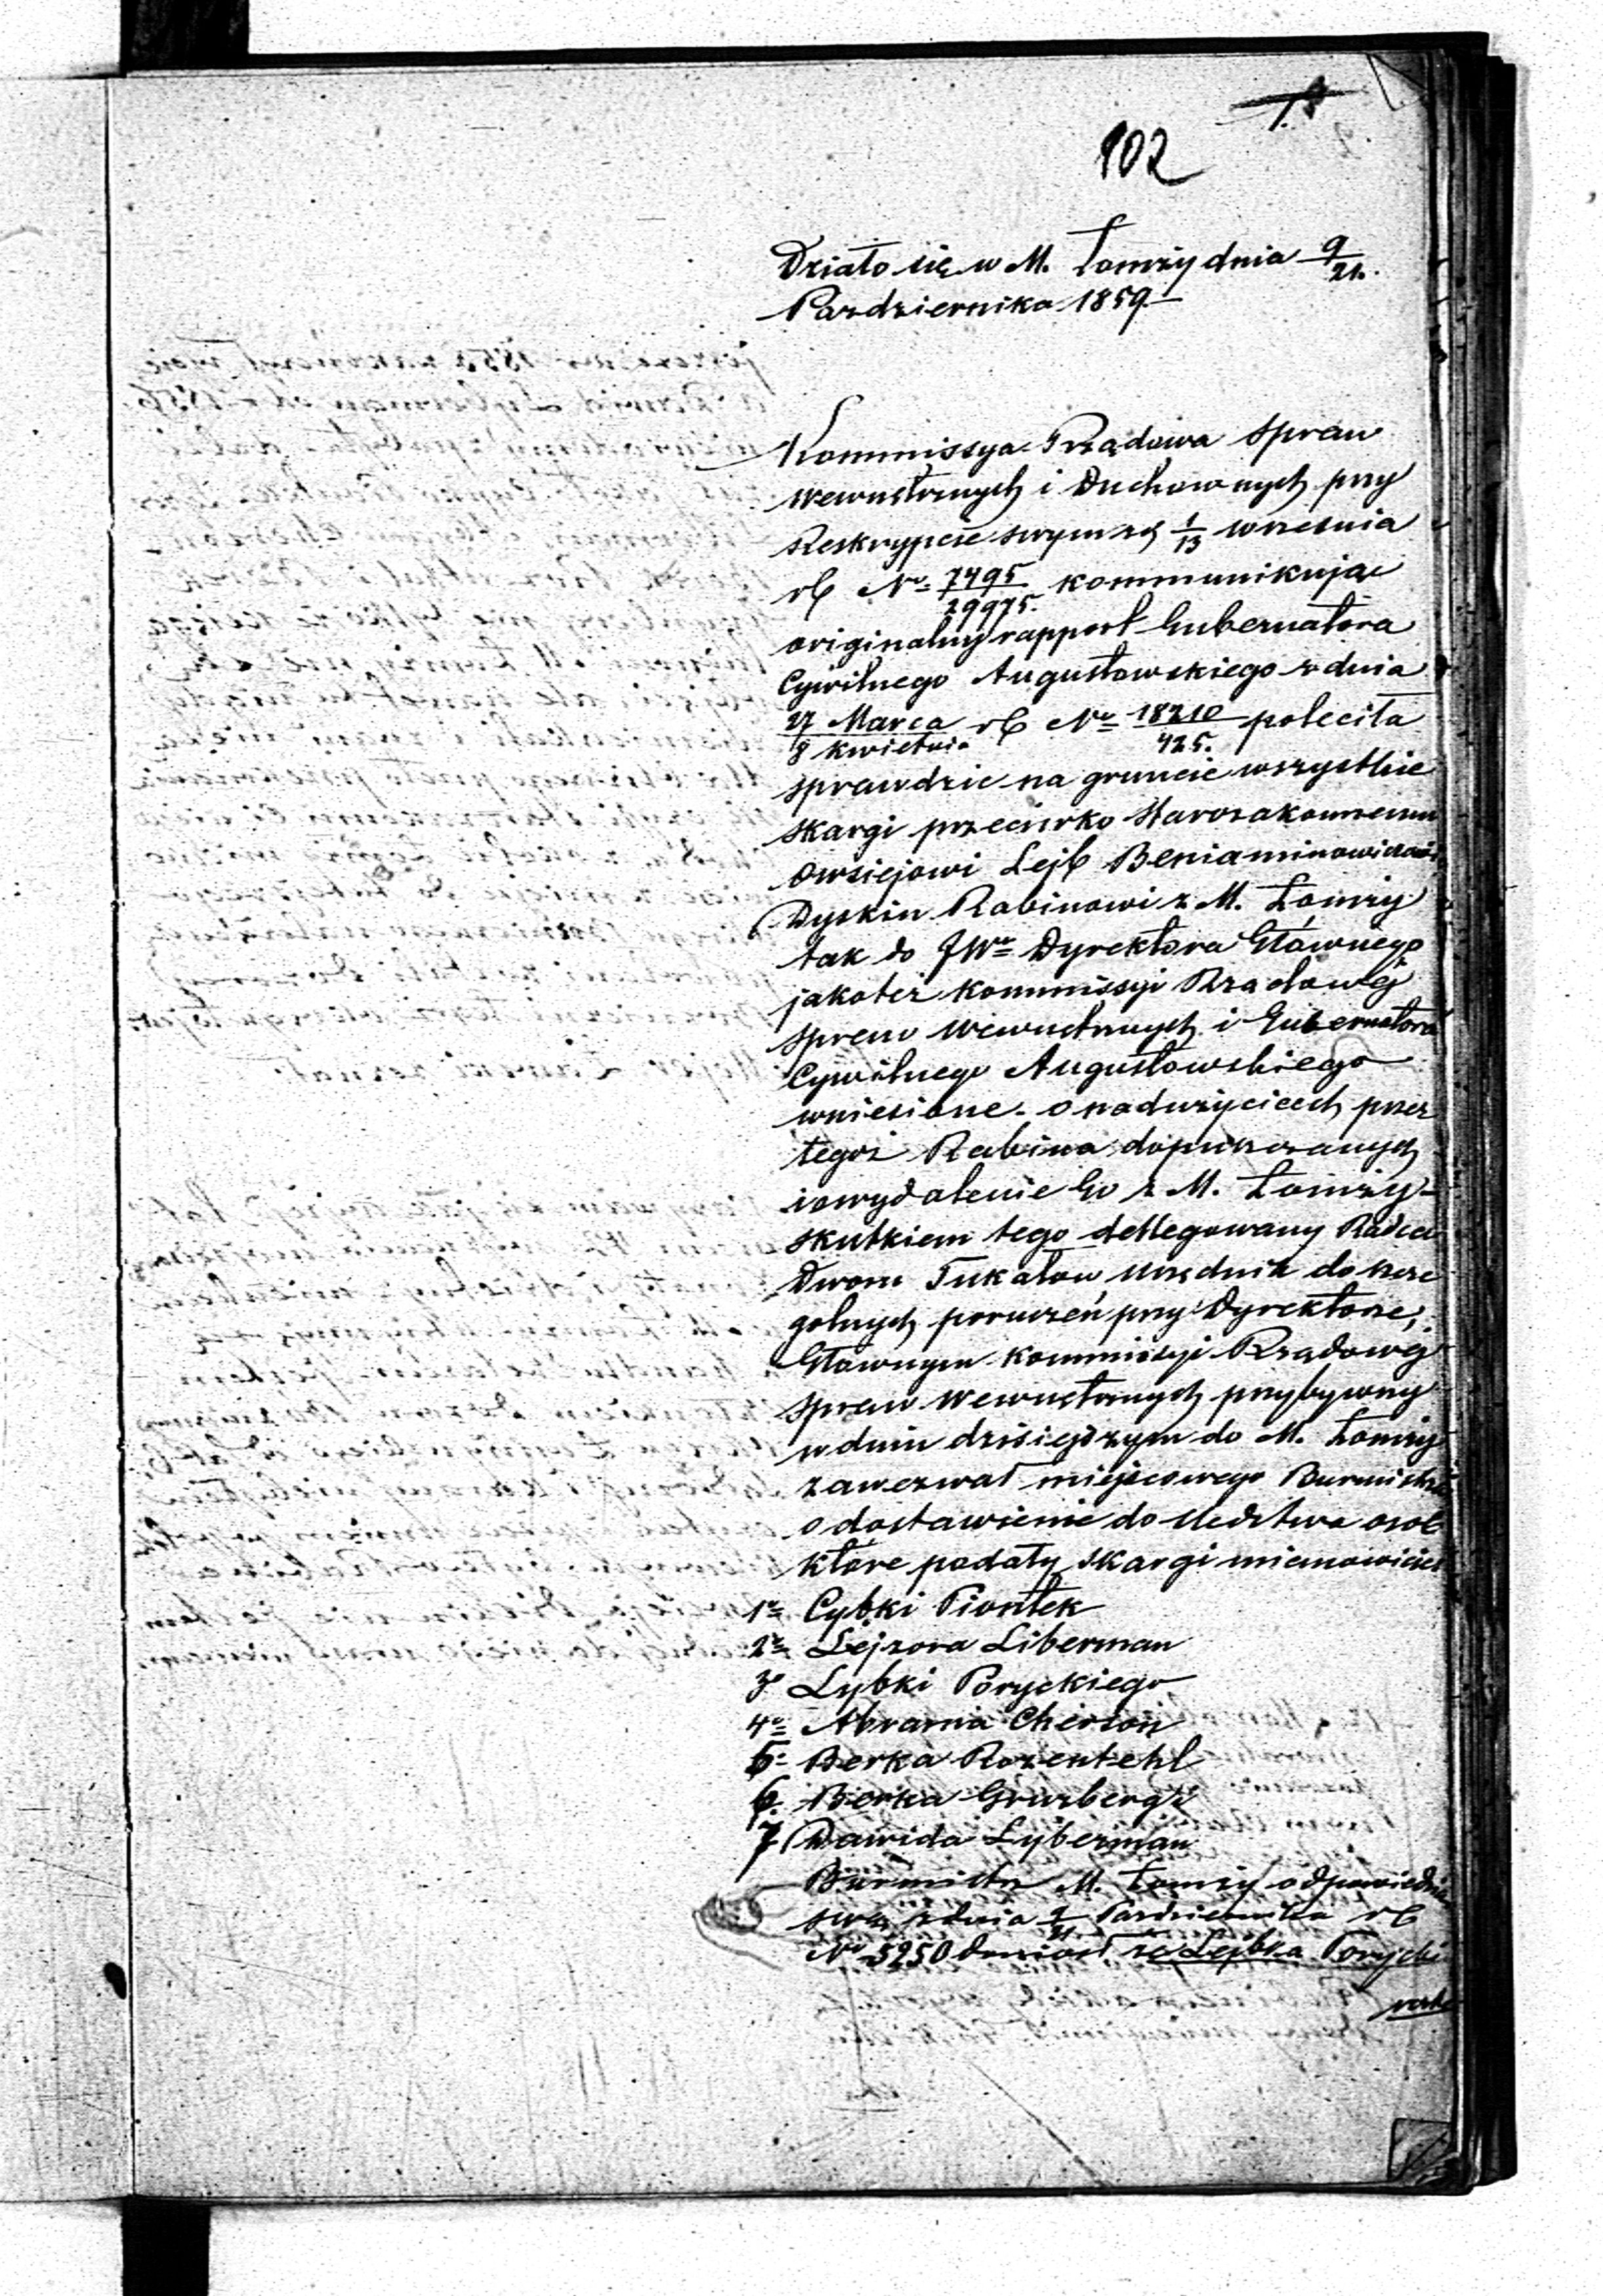 102
Działo się w M. Łomży dnia 9/21.
Pazdziernika 1859
Kommissya Rządowa Spraw
Wewnętrznych i Duchownych przy
Reskrypcie swym z d 1/13 Września
rb No 7495/29975. kommunikując
originalny rapport Gubernatora
Cywilnego Augustowskiego z dnia
27 Marca/8 Kwietnia rb No 18210/425. poleciła
sprawdzić na gruncie wszystkie
skargi przeciwko Starozakonnemu
Owsiejowi Lejb Beniaminowiczowi
Dyskin Rabinowi z M. Łomży
tak do JWo Dyrektora Głównego
jakoteż Kommissyi Rządowej
Spraw Wewnętrznych i Gubernatora
Cywilnego Augustowskiego
wniesione o nadużyciach przez
tegoż Rabina dopuszczanych
i o wydalenie Go z M. Łomży
skutkiem tego dellegowany Radca
Dworu Tukałow Urzędnik do szcze
gólnych poruczeń przy Dyrektorze
Głównym Kommissyi Rządowej
Spraw Wewnętrznych przybywszy
w dniu dzisiejszym do M. Łomży
zawezwał miejscowego Burmistrza
o dostawienie do śledztwa osob
które podały skargi mianowicie
1o Cybki Piontek
2o Lejzora Liberman
3o Lybki Poryckiego
4o Abrama Cherson
5o Berka Rozentehl
6. Berka Grinzberga
7 Dawida Lyberman
Burmistrz M. Łomży odpowiedzią
swą z dnia 9/21 Pazdziernika rb
No 5250 doniosł że Lejbka Porycki